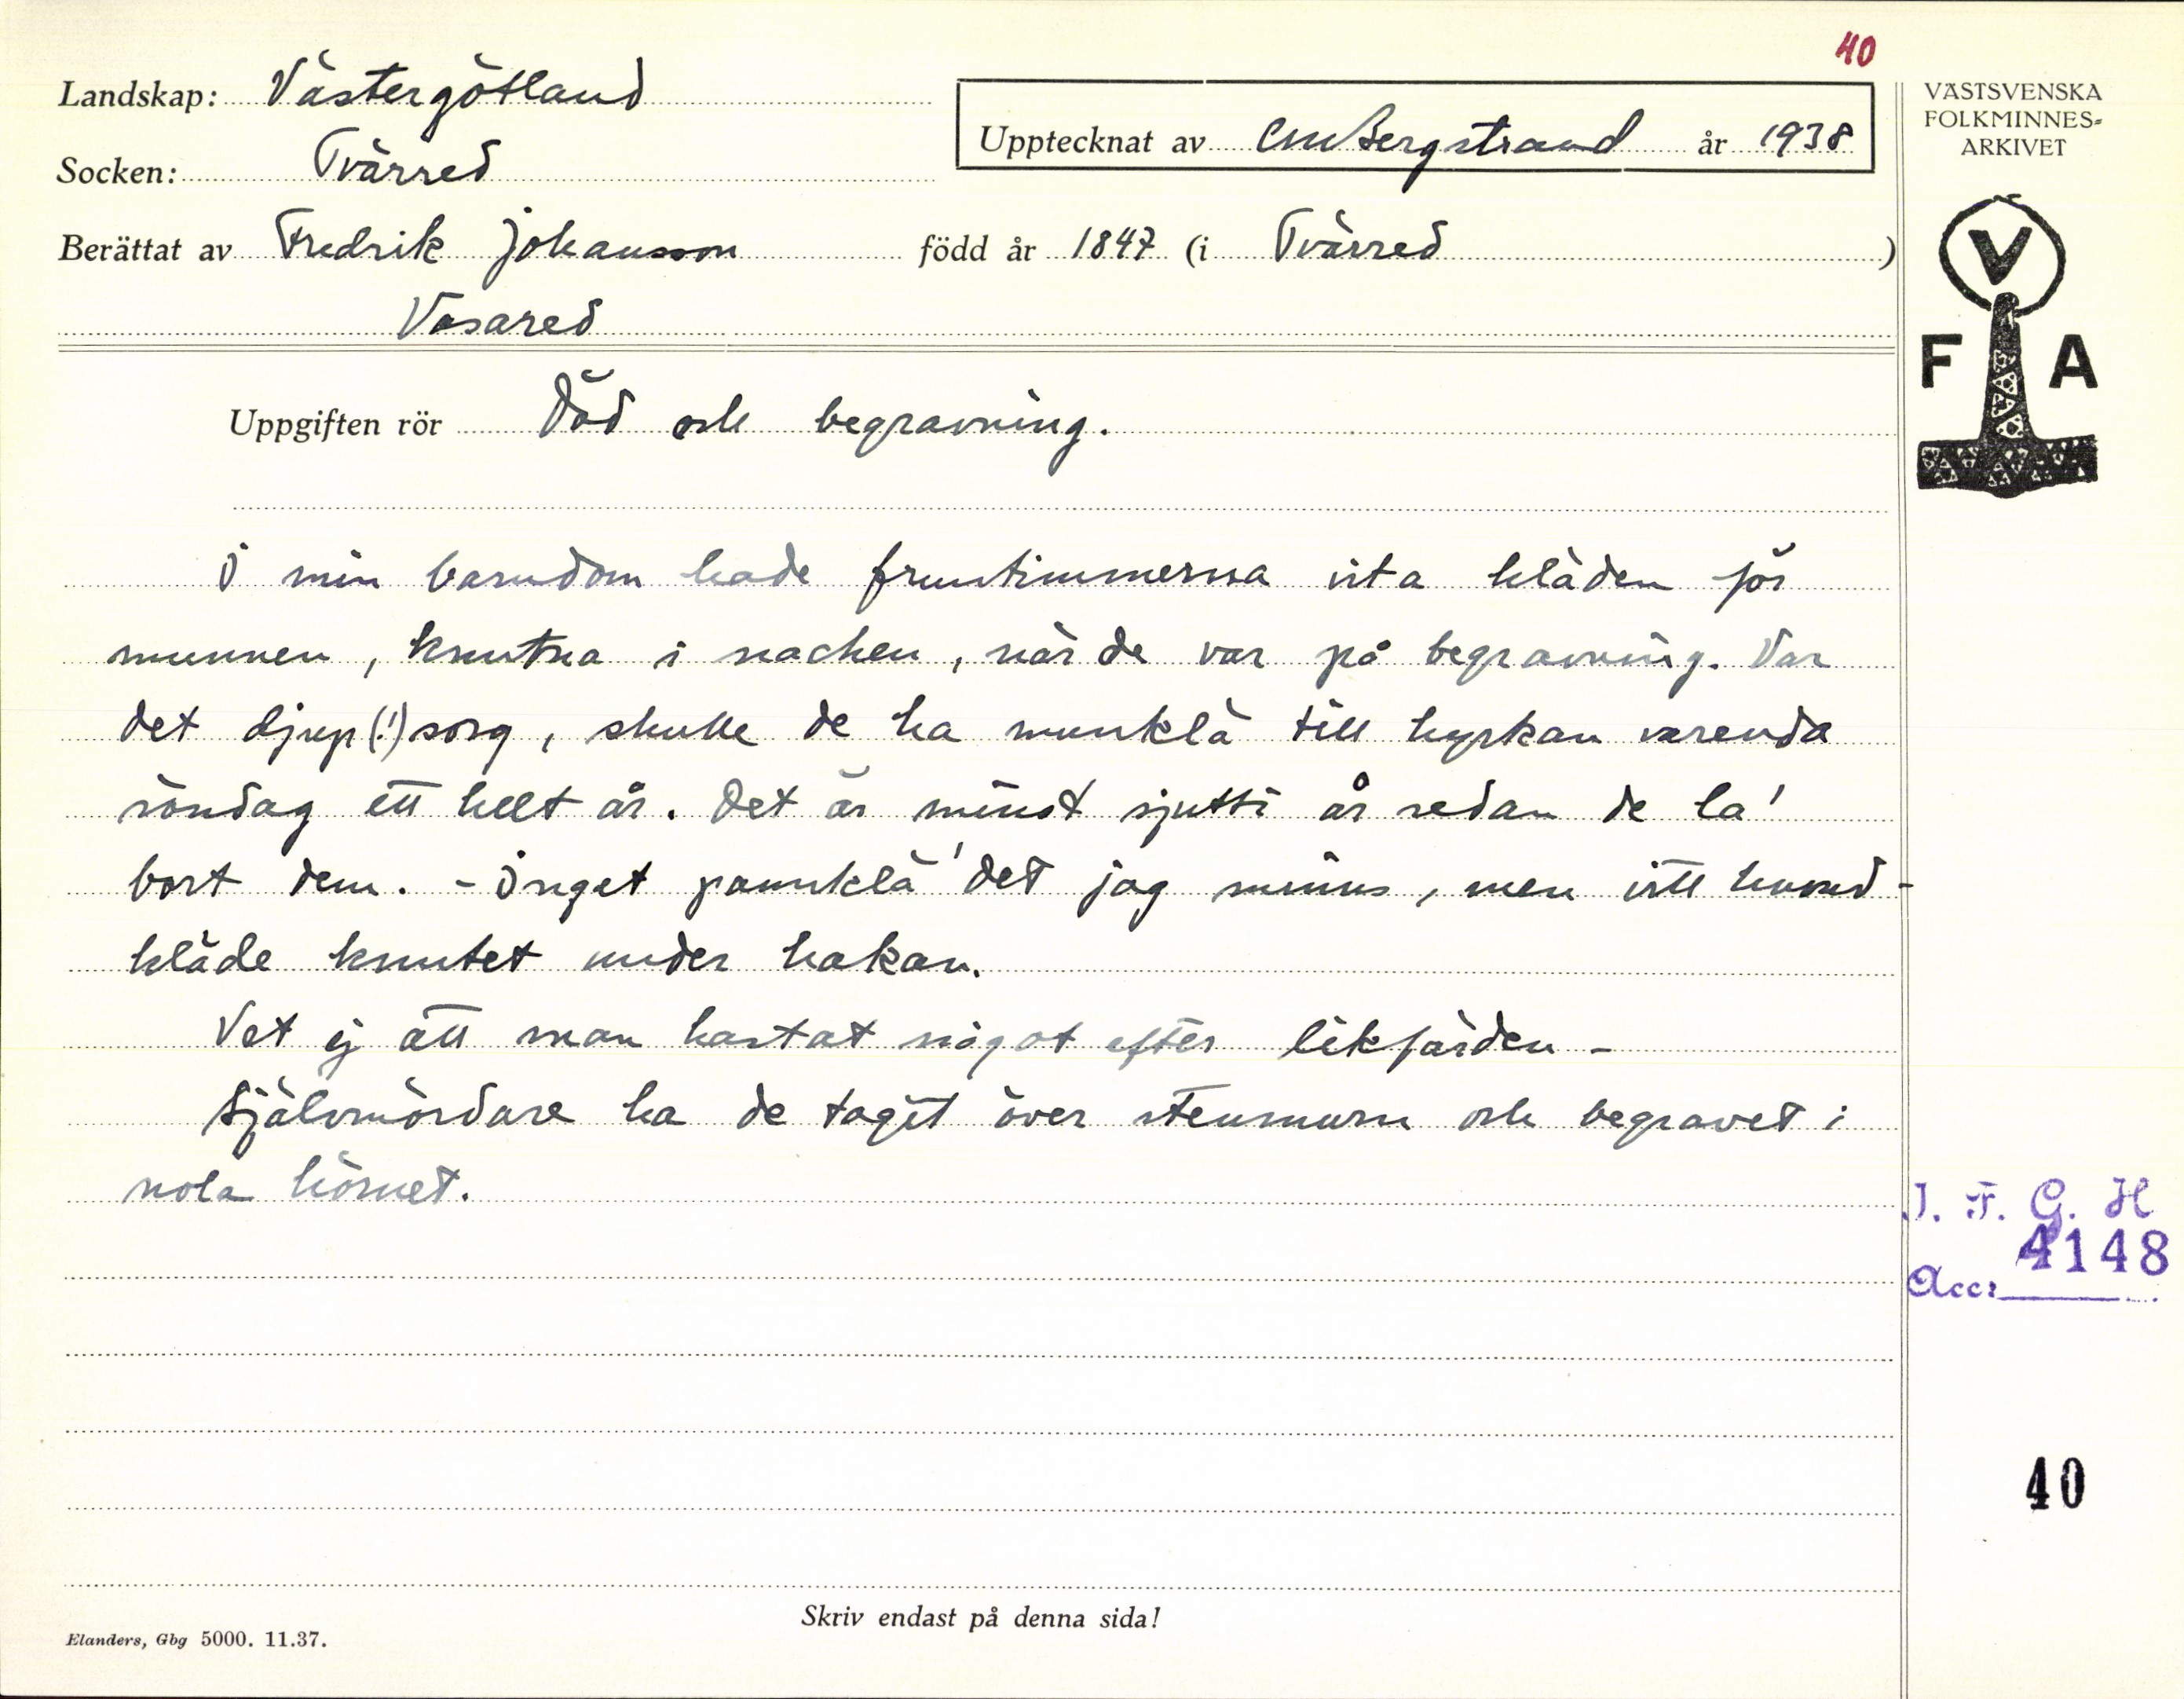 40
Landskap: Västergötland
Socken: Tvärred
Upptecknat av CMBergstrand år 1938
Berättat av Fredrik Johansson född år 1847 (i Tvärred)
Vosared
Uppgiften rör Död och begravning.
I min barndom hade fruntimmerna vita kläden för
munnen, knutna i nacken, när de var på begravning. Var
det djup(!) sorg, skulle de ha munklä till kyrkan varenda
söndag ett helt år. Det är minst sjutti år sedan de la'
bort dem. - Inget pannklä' det jag minns, men vitt huvud-
kläde knutet under hakan.
Vet ej att man kastat något efter likfärden -
Självmördare ha de tagit över stenmurn och begravet i
nola hörnet.
Skriv endast på denna sida!
Elanders, Gbg 5000. 11.37.
VÄSTSVENSKA
FOLKMINNES-
ARKIVET
V
F A
I. F. G. H
4148
Acc:
40